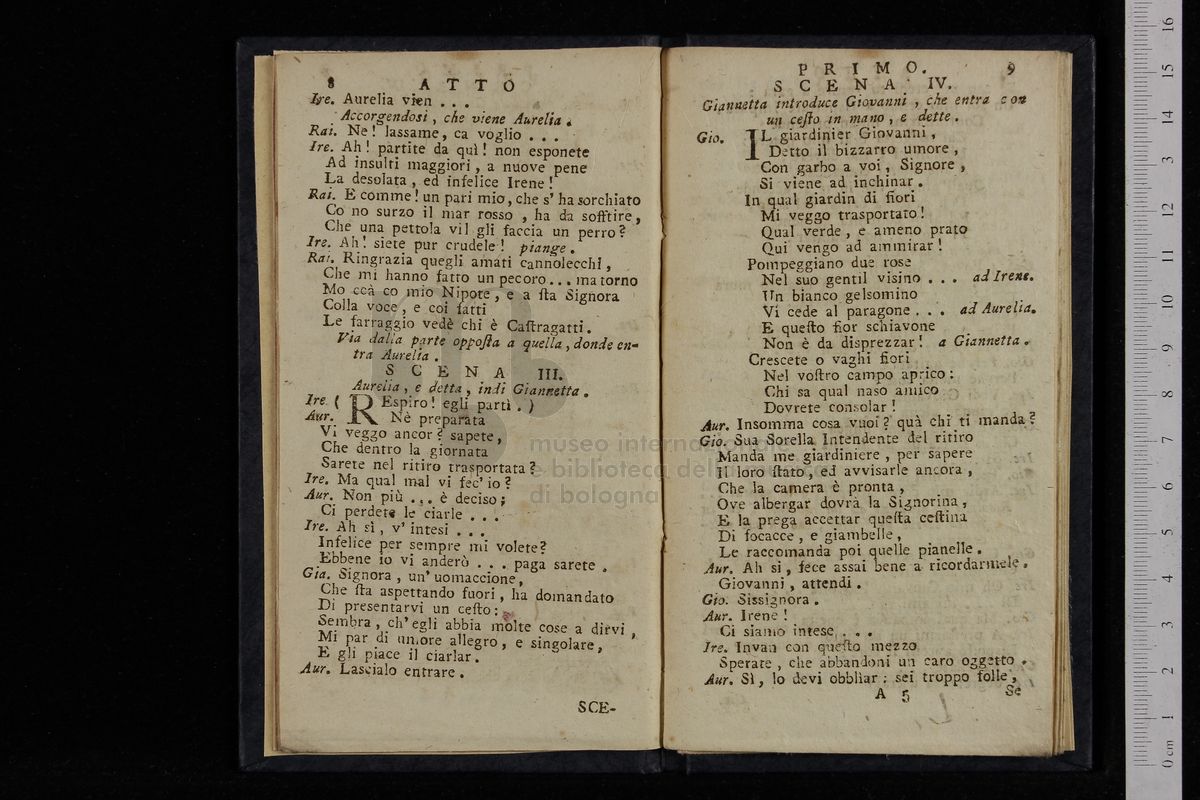 8 ATTO
Ire. Aurelia vien . . .
Accorgendosi, che viene Aurelia.
Rai. Ne! lassame, ca voglio . . .
Ire. Ah! partite da quì! non esponete
Ad insulti maggiori, a nuove pene
La desolata, ed infelice Irene!
Rai. E comme! un pari mio, che s' ha sorchiato
Co no surzo il mar rosso, ha da soffrire,
Che una pettola vil gli faccia un perro?
Ire. Ah! siete pur crudele! piange.
Rai. Ringrazia quegli amati cannolecchi,
Che mi hanno fatto un pecoro... ma torno
Mo ccà co mio Nipote, e a ſta Signora
Colla voce, e coi fatti
Le farraggio vedè chi è Caſtragatti.
Via dalla parte oppoſta a quella, donde en-
tra Aurelia.
SCENA III.
Aurelia, e detta, indi Giannetta.
Ire ( REspiro! egli partì. )
Aur. Nè preparata
Vi veggo ancor? sapete,
Che dentro la giornata
Sarete nel ritiro trasportata?
Ire. Ma qual mal vi fec' io?
Aur. Non più ... è deciso;
Ci perdete le ciarle . . .
Ire. Ah sì, v' intesi . . .
Infelice per sempre mi volete?
Ebbene io vi anderò . . . paga sarete.
Gia. Signora, un' uomaccione,
Che ſta aspettando fuori, ha domandato
Di presentarvi un ceſto:
Sembra, ch' egli abbia molte cose a dirvi,
Mi par di umore allegro, e singolare,
E gli piace il ciarlar.
Aur. Lascialo entrare.
SCE-
PRIMO. 9
SCENA IV.
Giannetta introduce Giovanni, che entra con
un ceſto in mano, e dette.
Gio. IL giardinier Giovanni,
Detto il bizzarro umore,
Con garbo a voi, Signore,
Si viene ad inchinar.
In qual giardin di fiori
Mi veggo trasportato!
Qual verde, e ameno prato
Qui vengo ad ammirar!
Pompeggiano due rose
Nel suo gentil visino . . . ad Irene.
Un bianco gelsomino
Vi cede al paragone . . . ad Aurelia.
E queſto fior schiavone
Non è da disprezzar! a Giannetta.
Crescete o vaghi fiori
Nel voſtro campo aprico:
Chi sa qual naso amico
Dovrete consolar!
Aur. Insomma cosa vuoi? quà chi ti manda?
Gio. Sua Sorella Intendente del ritiro
Manda me giardiniere, per sapere
Il loro ſtato, ed avvisarle ancora,
Che la camera è pronta,
Ove albergar dovrà la Signorina,
E la prega accettar queſta ceſtina
Di focacce, e giambelle,
Le raccomanda poi quelle pianelle.
Aur. Ah sì, fece assai bene a ricordarmele.
Giovanni, attendi.
Gio. Sissignora.
Aur. Irene!
Ci siamo intese . . .
Ire. Invan con queſto mezzo
Sperate, che abbandoni un caro oggetto.
Aur. Sì, lo devi obbliar: sei troppo folle,
A 5 Se
museo internazionale
e biblioteca della
di bologna